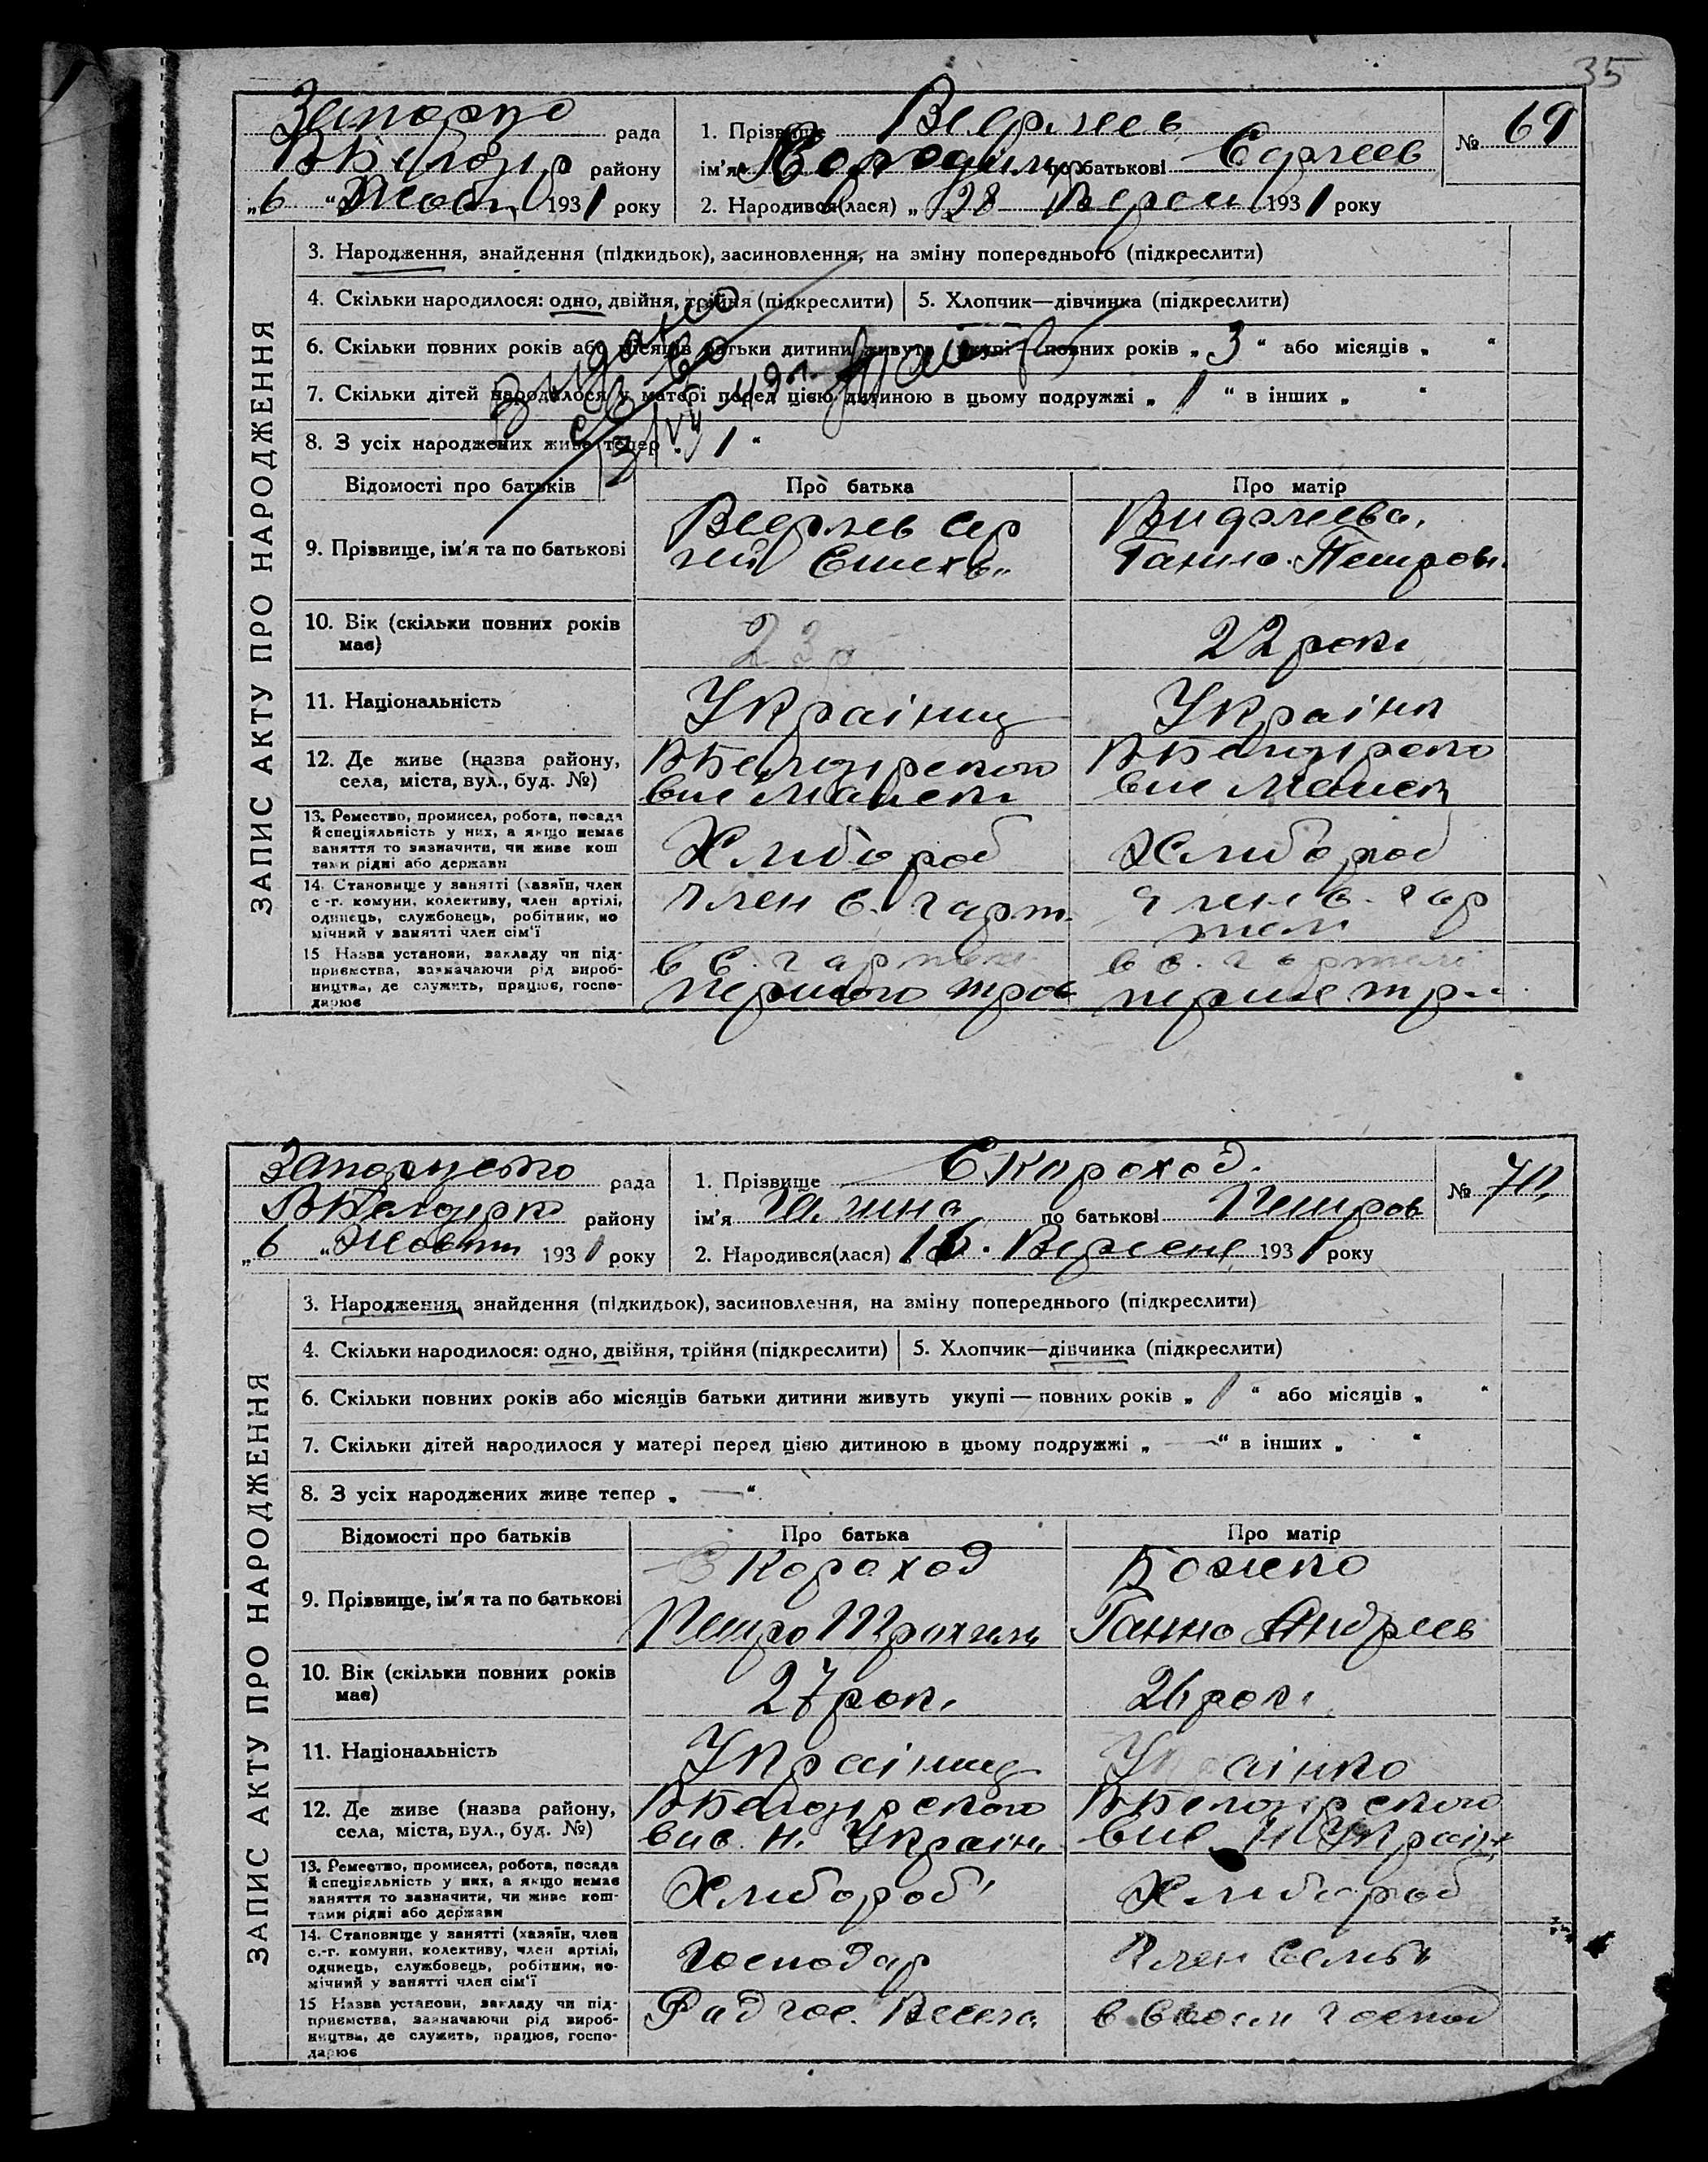 35
рада
району
„6“ Жовт. 1931 року
1. Прізвище
ім'я Володимир по батькові Сергеев
2. Народився(лася) „28 Верес 1931 року
№ 69
ЗАПИС АКТУ ПРО НАРОДЖЕННЯ
3. Народження, знайдення (підкидьок), засиновлення, на зміну попереднього (підкреслити)
4. Скільки народилося: одно, двійня, трійня (підкреслити)
5. Хлопчик—дівчинка (підкреслити)
6. Скільки повних років або місяців батьки дитини живуть укупі — повних років „ 3 “ або місяців „ “
7. Скільки дітей народилося у матері перед цією дитиною в цьому подружжі „ 1 “ в інших „ “
8. З усіх народжених живе тепер „ 1 “
Відомості про батьків
Про батька
Про матір
9. Прізвище, ім'я та по батькові
Сер
гей
Ганна Петров.
10. Вік (скільки повних років
має)
23р
22 роки
11. Національність
Українц
Україн
12. Де живе (назва району,
села, міста, вул., буд. №)
13. Ремество, промисел, робота, посада
й спеціяльність у них, а якщо немає
заняття то зазначити, чи живе кош
тами рідні або держави
Хлибороб
Хлибороб
14. Становище у занятті (хазяїн, член
с.-г. комуни, колективу, член артілі,
одинець, службовець, робітник, по
мічний у занятті член сім'ї
член с. гарт.
член с. гар
тели
15 Назва установи, закладу чи під-
приємства, зазначаючи рід вироб-
ництва, де служить, працює, госпо-
дарює
в с. гартели
першого трав
в с. гартелі
перше тра
рада
району
„6“ Жовтн 1931 року
1. Прізвище Скороход.
ім'я по батькові Петров
2. Народився(лася) Вересня 1931 року
№ 70
ЗАПИС АКТУ ПРО НАРОДЖЕННЯ
3. Народження, знайдення (підкидьок), засиновлення, на зміну попереднього (підкреслити)
4. Скільки народилося: одно, двійня, трійня (підкреслити)
5. Хлопчик—дівчинка (підкреслити)
6. Скільки повних років або місяців батьки дитини живуть укупі — повних років „ 1 “ або місяців „ “
7. Скільки дітей народилося у матері перед цією дитиною в цьому подружжі „ — “ в інших „ “
8. З усіх народжених живе тепер „ — “
Відомості про батьків
Про батька
Про матір
9. Прізвище, ім'я та по батькові
Скороход
Петро
Божко
Ганна Андреев
10. Вік (скільки повних років
має)
27 рок.
26 рок.
11. Національність
Українц
Українко
12. Де живе (назва району,
села, міста, вул., буд. №)
вис. Н. Україн.
вис. Н Україн.
13. Ремество, промисел, робота, посада
й спеціяльність у них, а якщо немає
заняття то зазначити, чи живе кош-
тами рідні або держави
Хлибороб
Хлибороб
14. Становище у занятті (хазяїн, член
с.-г. комуни, колективу, член артілі,
одинець, службовець, робітник, по-
мічний у занятті член сім'ї
Господар
Член семьи
15 Назва установи, закладу чи під-
приємства, зазначаючи рід вироб-
ництва, де служить, працює, госпо-
дарює
Радгос.
в своем господ